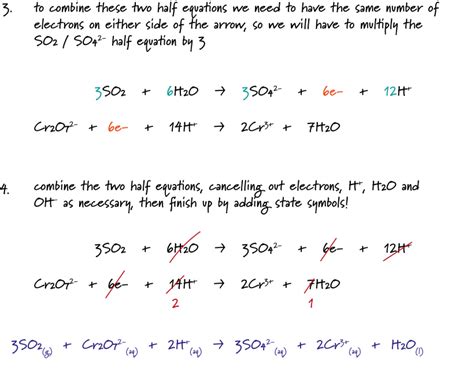 3. to combine these two half equations we need to have the same number of
electrons on either side of the arrow, so we will have to multiply the
SO2 / SO4²⁻ half equation by 3
3SO2 + 6H2O → 3SO4²⁻ + 6e- + 12H⁺
Cr2O7²⁻ + 6e- + 14H⁺ → 2Cr³⁺ + 7H2O
4. combine the two half equations, cancelling out electrons, H⁺, H2O and
OH⁻ as necessary, then finish up by adding state symbols!
3SO2 + 6H2O → 3SO4²⁻ + 6e- + 12H⁺
Cr2O7²⁻ + 6e- + 14H⁺ → 2Cr³⁺ + 7H2O
2 1
3SO2(g) + Cr2O7²⁻(aq) + 2H⁺(aq) → 3SO4²⁻(aq) + 2Cr³⁺(aq) + H2O(l)